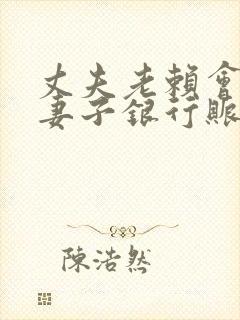 丈夫老賴會
妻子銀行賬
陳浩然